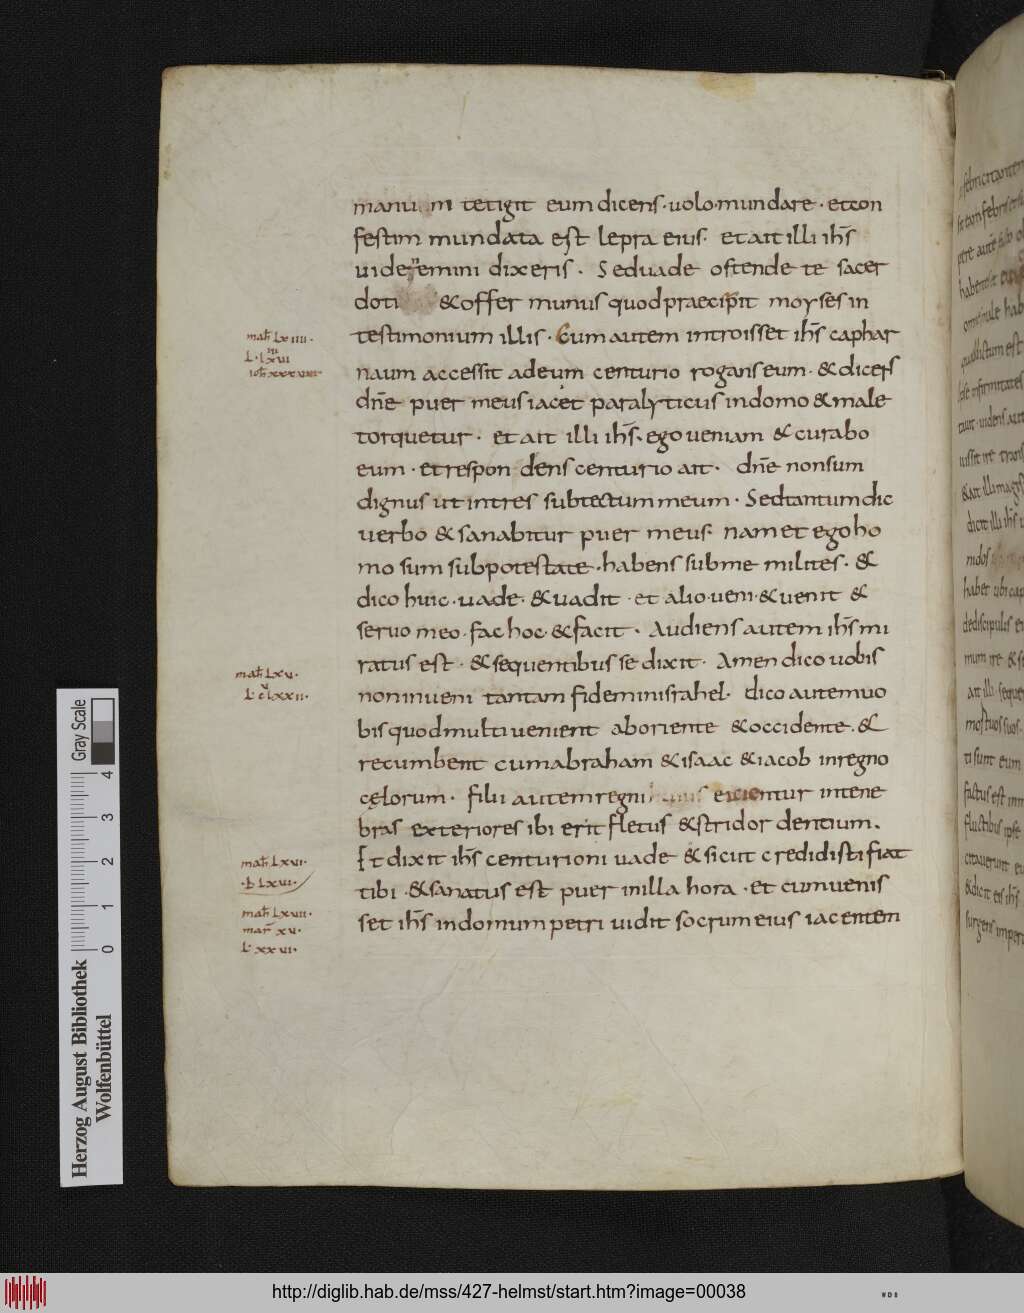 manu m tetigit eum dicens · uolo · mundare · et con
festim mundata est lepra eius · et ait illi ih̄s
uide nemini dixeris · Sed uade ostende te sacer
doti & offer munus quod praecipit moyses in
testimonium illis · Cum autem introisset ih̄s caphar
naum accessit ad eum centurio rogans eum · & dicens
dn̄e puer meus iacet paralyticus in domo & male
torquetur · et ait illi ih̄s · ego ueniam & curabo
eum · et respon dens centurio ait · dn̄e non sum
dignus ut intres sub tectum meum · Sed tantum dic
uerbo & sanabitur puer meus · nam et ego ho
mo sum sub potestate · habens sub me milites · &
dico huic · uade · & uadit · et alio · ueni · & uenit &
seruo meo · fac hoc · & facit · Audiens autem ih̄s mi
ratus est · & sequentibus se dixit · Amen dico uobis
non inueni tantam fidem in israhel · dico autem uo
bis quod multi uenient ab oriente & occidente · &
recumbent cum abraham & isaac & iacob in regno
cęlorum · filii autem regni eicientur in tene
bras exteriores ibi erit fletus & stridor dentium ·
Et dixit ih̄s centurioni uade & sicut credidisti fiat
tibi · & sanatus est puer in illa hora · et cum uenis
set ih̄s in domum petri uidit socrum eius iacenten
math̄ Lxiiii ·
L · Lxvi
ioh̄ xxxvii ·
math̄ Lxv ·
L · cLxxii ·
math̄ Lxvi ·
· L Lxvi ·
math̄ Lxvii ·
mar̄ xv ·
L · xxvi ·
Herzog August Bibliothek
Wolfenbüttel
0 1 2 3 4
Gray Scale
http://diglib.hab.de/mss/427-helmst/start.htm?image=00038